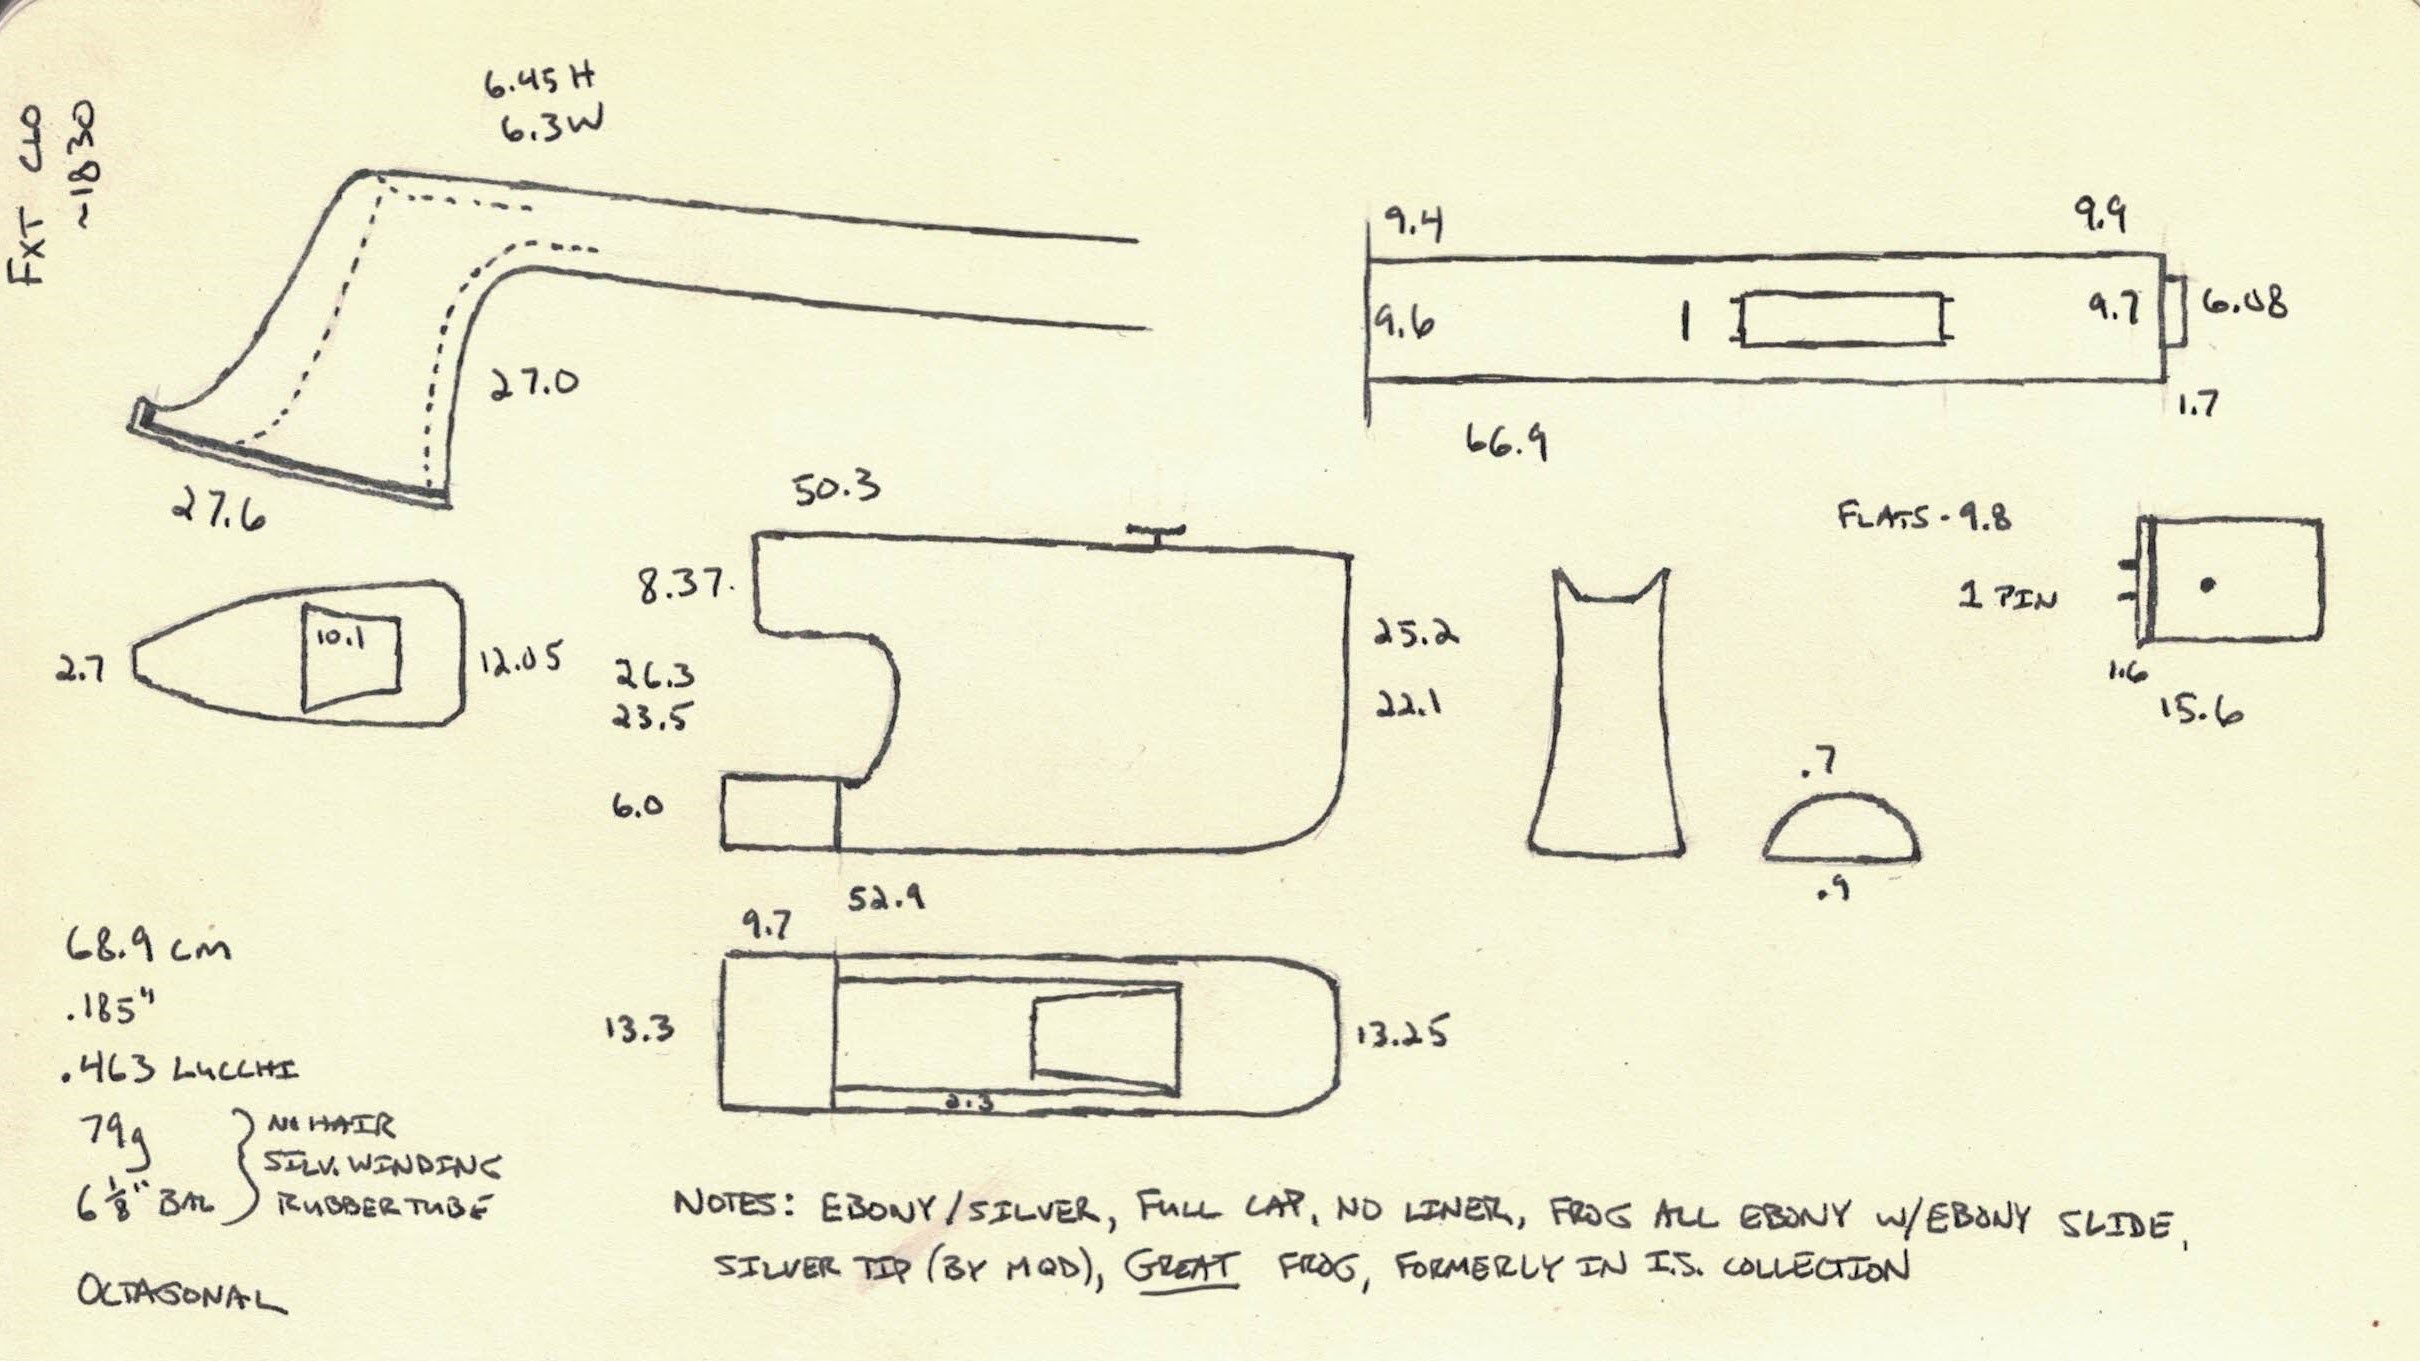 FXT CLO
~1830
6.45 H
6.3 W
27.0
27.6
9.4
9.9
9.6
9.7
6.08
1.7
66.9
2.7
10.1
12.05
50.3
8.37
26.3
23.5
6.0
25.2
22.1
52.9
FLATS - 9.8
1 PIN
1.6
15.6
.7
.9
9.7
13.3
2.3
13.25
68.9 cm
.185"
.463 LUCCHI
79g
6 1/8" BAL
NO HAIR
SILV. WINDING
RUBBER TUBE
OCTAGONAL
NOTES: EBONY/SILVER, FULL CAP, NO LINER, FROG ALL EBONY W/EBONY SLIDE,
SILVER TIP (BY MQD), GREAT FROG, FORMERLY IN I.S. COLLECTION